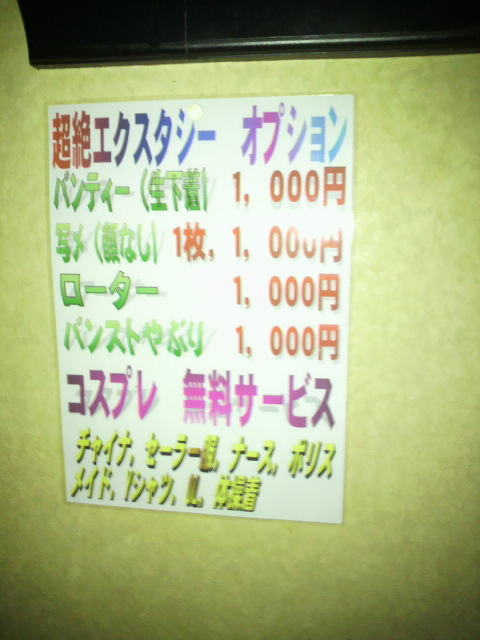 超絶エクスタシー オプション
パンティー(生下着) 1,000円
写メ(顔なし)1枚,1,000円
ローター 1,000円
パンストやぶり 1,000円
コスプレ 無料サービス
チャイナ,セーラー服,ナース,ポリス
メイド,Yシャツ,OL,体操着